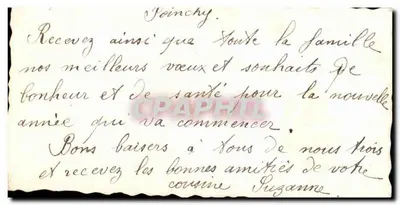 Poinchy.
Recevez ainsi que toute la famille
nos meilleurs vœux et souhaits de
bonheur et de santé pour la nouvelle
année qui va commencer.
Bons baisers à tous de nous trois
et recevez les bonnes amitiés de votre
cousine Suzanne